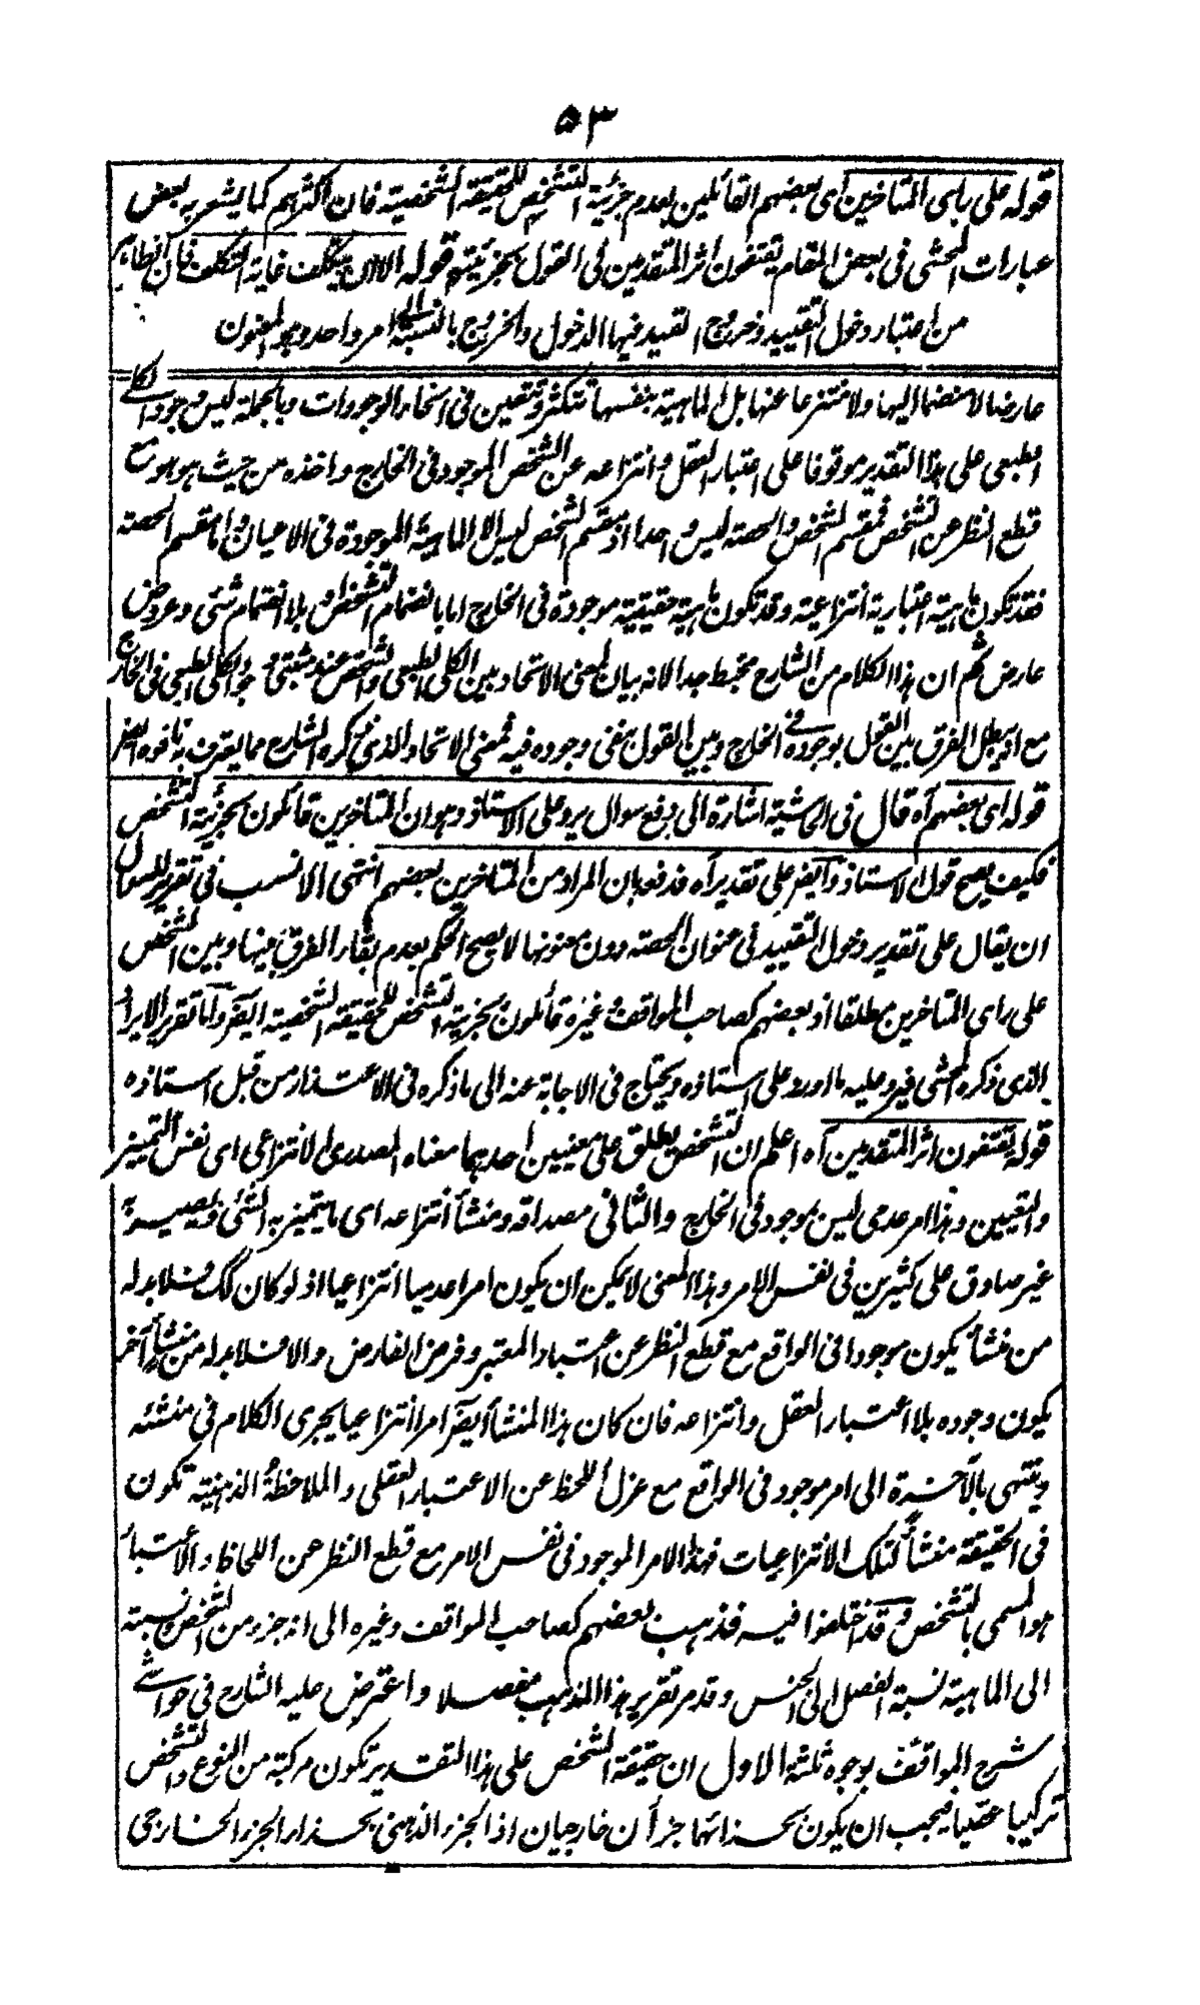 ٥٣
قوله على راى المتاخرين اى بعضهم القائلين بعدم جزئية التشخص للحقيقة الشخصية فان اكثرهم كما يشعر به بعض
عبارات المحشى فى بعض المقام يقتفون اثر المتقدمين فى القول بجزئيته قوله الا ان يتكلف غاية التكلف فان الظاهر
من اعتبار دخول التقييد وخروج القيد فيها الدخول والخروج بالنسبة الى امر واحد وهو المعنون
عارضا لا منضما اليها ولا منتزعا عنها بل الماهية بنفسها تتكثر وتتعين فى انحاء الوجودات وبالجملة ليس وجود الكلى
الطبعى على هذا التقدير موقوفا على اعتبار العقل وانتزاعه عن الشخص الموجود فى الخارج واخذه من حيث هو هو مع
قطع النظر عن التشخص فمقسم الشخص والحصة ليس واحدا اذ مقسم الشخص ليس الا الماهية الموجودة فى الاعيان واما مقسم الحصة
فقد تكون ماهية اعتبارية انتزاعية وقد تكون ماهية حقيقية موجودة فى الخارج اما بانضمام التشخص او بلا انضمام شئى وعروض
عارض ثم ان هذا الكلام من الشارح مختبط جدا لانه بيان لمعنى الاتحاد بين الكلى الطبعى والشخص عند مثبتى وجود الكلى الطبعى فى الخارج
مع انه يبطل الفرق بين القول بوجوده فى الخارج وبين القول بنفى وجوده فيه فمعنى الاتحاد الذى ذكره الشارح مما يعترف به نافوه ايضا
قوله اى بعضهم آه قال فى الحاشية اشارة الى دفع سوال يرد على الاستاذ وهو ان المتاخرين قائلون بجزئية التشخص
فكيف يصح قول الاستاذ وايضر على تقدير آه فدفعه بان المراد من المتاخرين بعضهم انتهى الانسب فى تقرير السوال
ان يقال على تقدير دخول التقييد فى عنوان الحصة دون معنونها لا يصح الحكم بعدم بقاء الفرق بينها وبين الشخص
على راى المتاخرين مطلقا اذ بعضهم كصاحب المواقف وغيره قائلون بجزئية التشخص للحقيقة الشخصية ايضر واما تقرير الايراد
الذى ذكره المحشى فيرد عليه ما اورد على استاذه ويحتاج فى الاجابة عنه الى ما ذكره فى الاعتذار من قبل استاذه
قوله يقتفون اثر المتقدمين آه اعلم ان التشخص يطلق على معنيين احدهما معناه المصدرى الانتزاعى اى نفس التميز
والتعيين وهذا امر عدمى ليس بموجود فى الخارج والثانى مصداقه ومنشأ انتزاعه اى ما يتميز به الشئى ويصير به
غير صادق على كثيرين فى نفس الامر وهذا المعنى لا يمكن ان يكون امرا عدميا انتزاعيا اذ لو كان كك فلا بد له
من منشأ يكون موجودا فى الواقع مع قطع النظر عن اعتبار المعتبر وفرض الفارض والا فلا بد له من منشأ آخر
يكون وجوده بلا اعتبار العقل وانتزاعه فان كان هذا المنشأ ايضر امرا انتزاعيا يجرى الكلام فى منشئه
وينتهى بالآخرة الى امر موجود فى الواقع مع عزل اللحظ عن الاعتبار العقلى والملاحظة الذهنية تكون
فى الحقيقة منشأ لتلك الانتزاعيات فهذا الامر الموجود فى نفس الامر مع قطع النظر عن اللحاظ والاعتبار
هو المسمى بالتشخص وقد اختلفوا فيه فذهب بعضهم كصاحب المواقف وغيره الى انه جزء من الشخص نسبته
الى الماهية نسبة الفصل الى الجنس وقد مر تقرير هذا المذهب مفصلا واعترض عليه الشارح فى حواشى
شرح المواقف بوجوه ثلثة الاول ان حقيقة الشخص على هذا التقدير تكون مركبة من النوع والتشخص
تركيبا عقليا فيجب ان يكون بحذائهما جزأن خارجيان اذ الجزء الذهنى بحذاء الجزء الخارجى